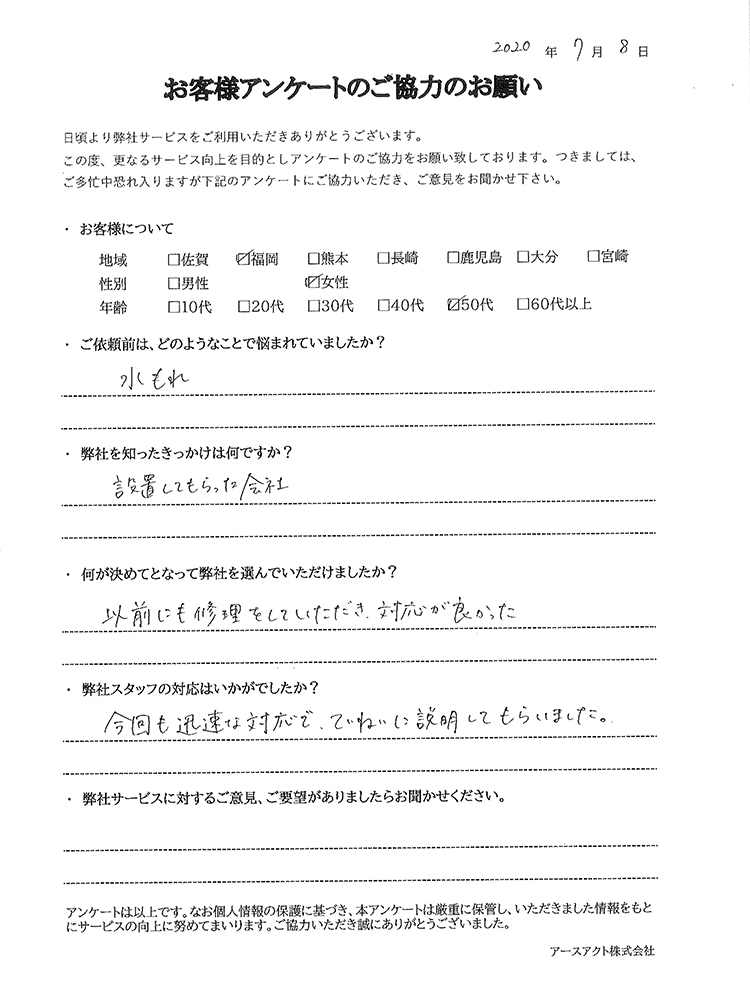 2020 年 7 月 8 日
お客様アンケートのご協力のお願い
日頃より弊社サービスをご利用いただきありがとうございます。
この度、更なるサービス向上を目的としアンケートのご協力をお願い致しております。つきましては、
ご多忙中恐れ入りますが下記のアンケートにご協力いただき、ご意見をお聞かせ下さい。
・ お客様について
地域 □佐賀 ☑福岡 □熊本 □長崎 □鹿児島 □大分 □宮崎
性別 □男性 ☑女性
年齢 □10代 □20代 □30代 □40代 ☑50代 □60代以上
・ ご依頼前は、どのようなことで悩まれていましたか？
水もれ
・ 弊社を知ったきっかけは何ですか？
設置してもらった会社
・ 何が決めてとなって弊社を選んでいただけましたか？
以前にも修理をしていただき、対応が良かった
・ 弊社スタッフの対応はいかがでしたか？
今回も迅速な対応で、ていねいに説明してもらいました。
・ 弊社サービスに対するご意見、ご要望がありましたらお聞かせください。
アンケートは以上です。なお個人情報の保護に基づき、本アンケートは厳重に保管し、いただきました情報をもと
にサービスの向上に努めてまいります。ご協力いただき誠にありがとうございました。
アースアクト株式会社